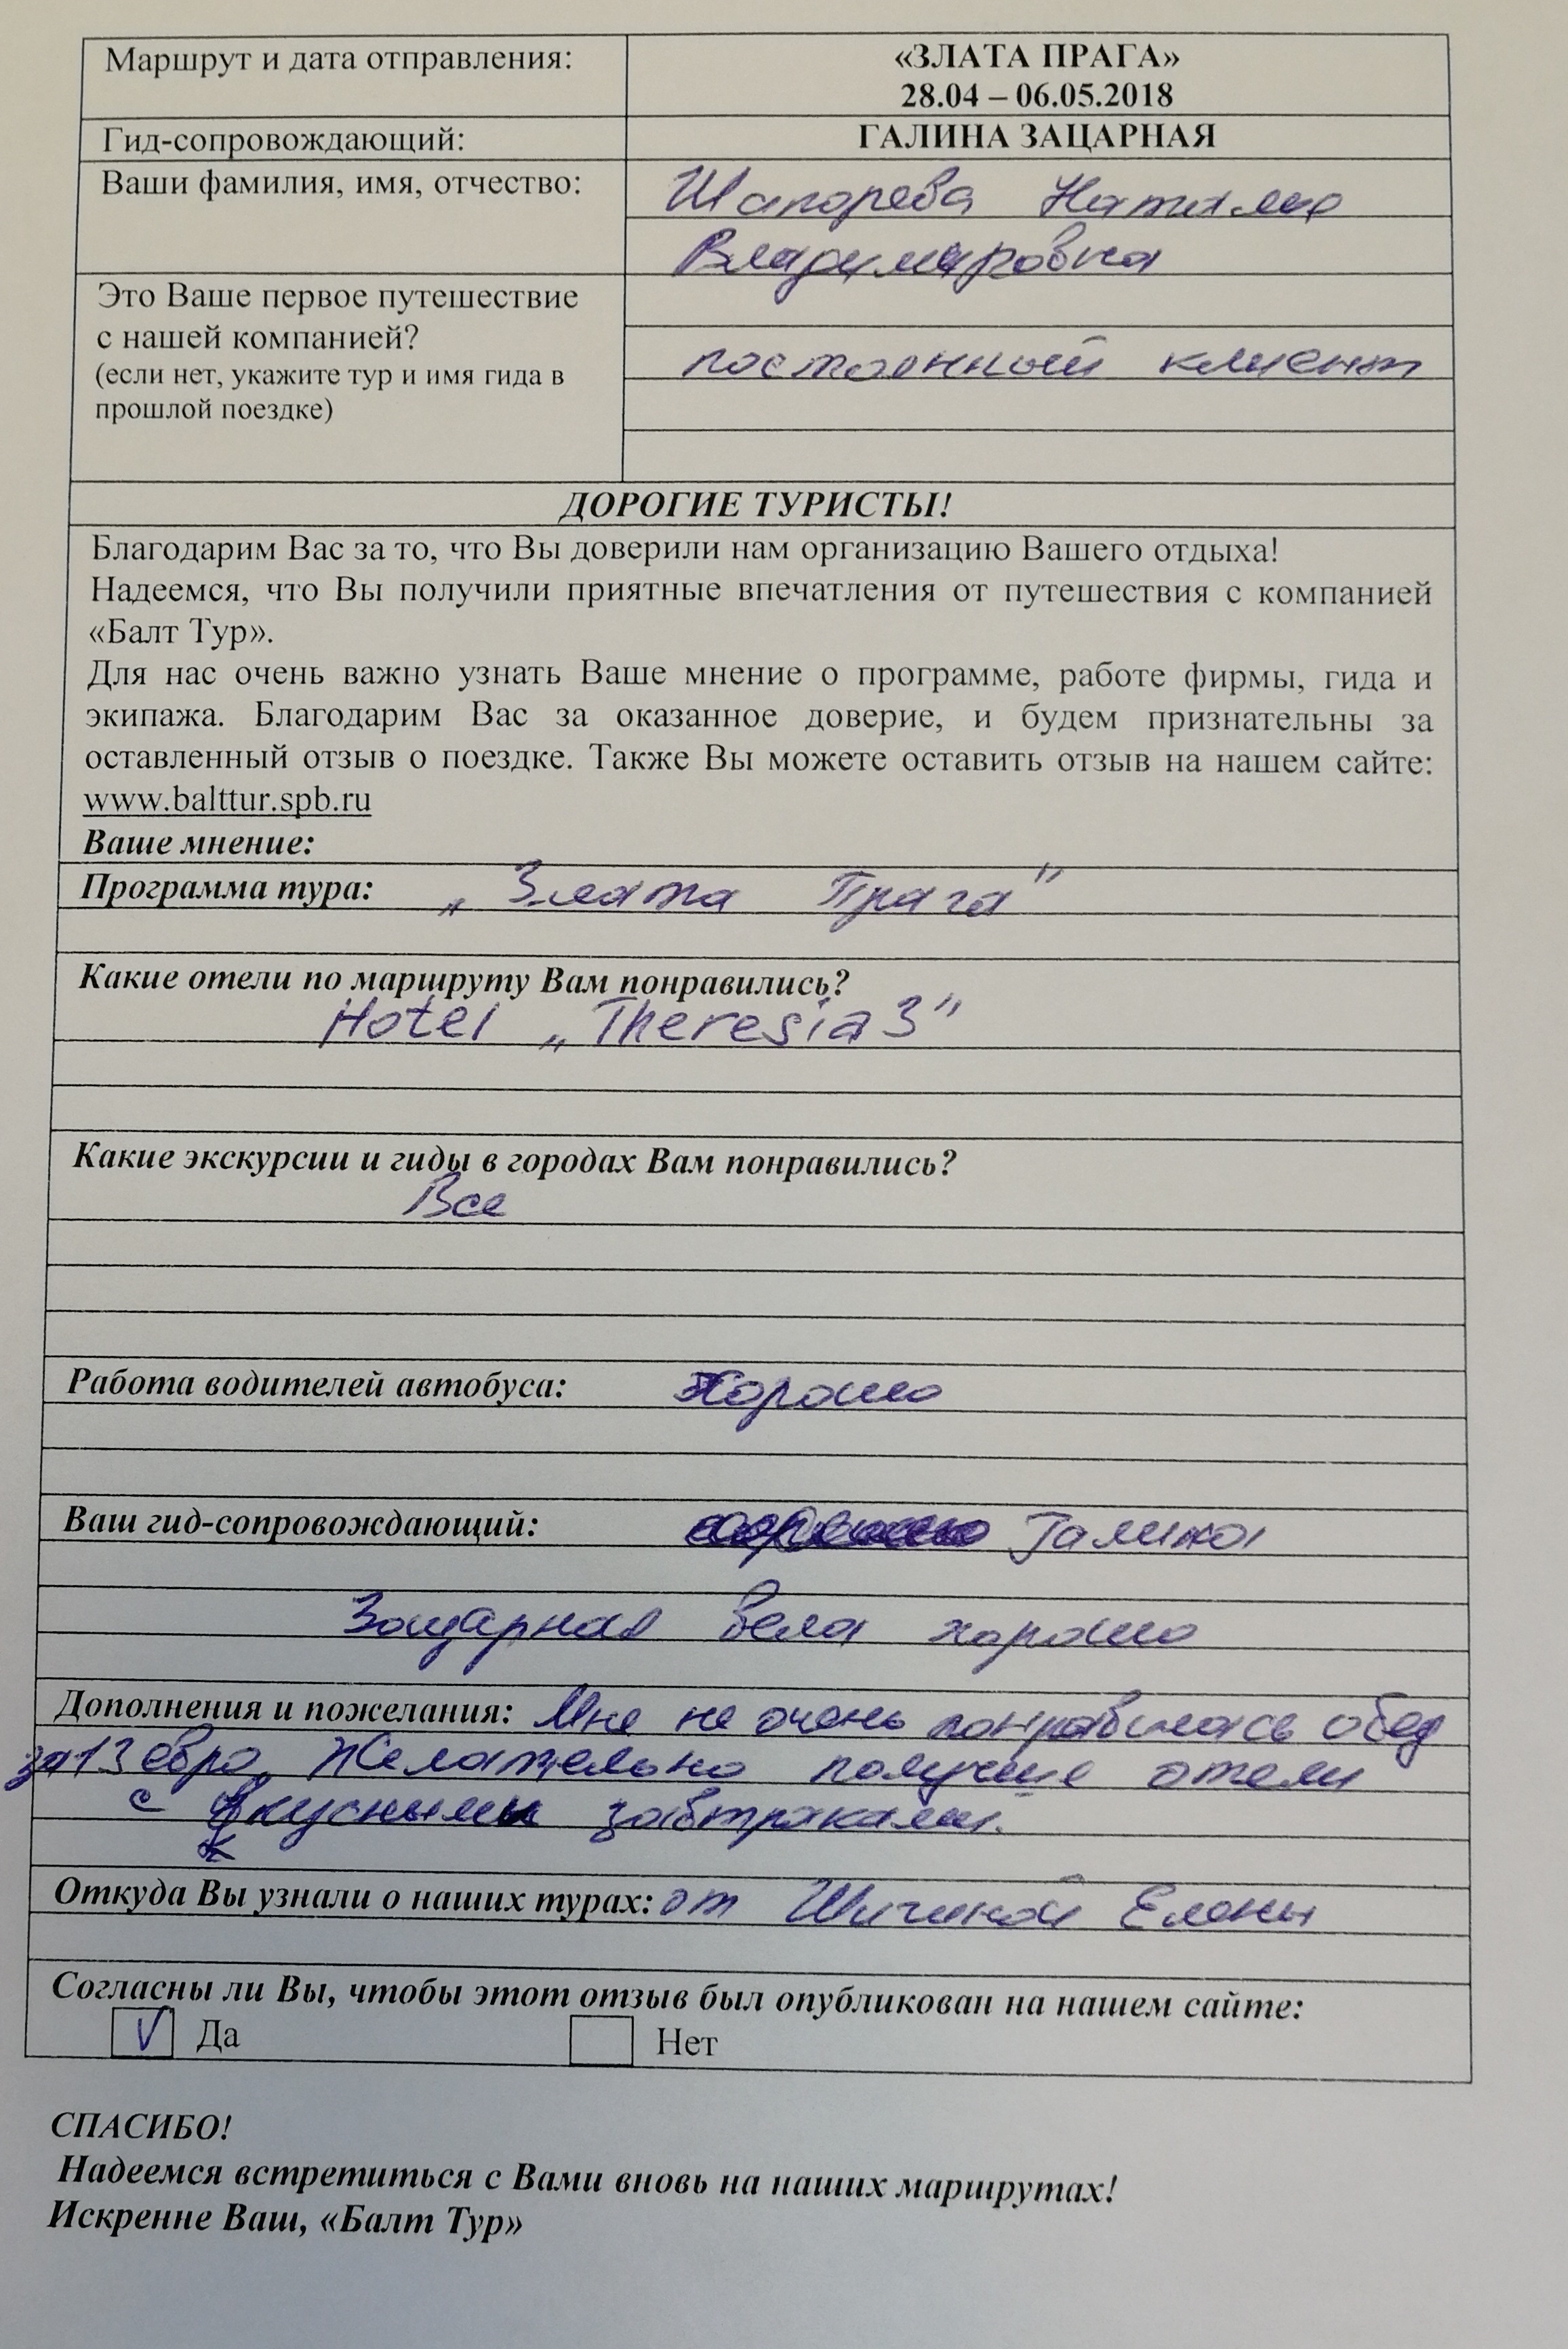 Маршрут и дата отправления:
«ЗЛАТА ПРАГА»
28.04 – 06.05.2018
Гид-сопровождающий:
ГАЛИНА ЗАЦАРНАЯ
Ваши фамилия, имя, отчество:
Шапорева Наталия
Владимировна
Это Ваше первое путешествие
с нашей компанией?
(если нет, укажите тур и имя гида в
прошлой поездке)
постоянный клиент
ДОРОГИЕ ТУРИСТЫ!
Благодарим Вас за то, что Вы доверили нам организацию Вашего отдыха!
Надеемся, что Вы получили приятные впечатления от путешествия с компанией
«Балт Тур».
Для нас очень важно узнать Ваше мнение о программе, работе фирмы, гида и
экипажа. Благодарим Вас за оказанное доверие, и будем признательны за
оставленный отзыв о поездке. Также Вы можете оставить отзыв на нашем сайте:
www.balttur.spb.ru
Ваше мнение:
Программа тура: „Злата Прага"
Какие отели по маршруту Вам понравились?
Hotel „Theresia 3"
Какие экскурсии и гиды в городах Вам понравились?
Все
Работа водителей автобуса: Хорошо
Ваш гид-сопровождающий: Галина
Зацарная вела хорошо
Дополнения и пожелания: Мне не очень понравилась обед
за 13 евро. Желательно получше отели
с вкусными завтраками.
Откуда Вы узнали о наших турах: от Шичиной Елены
Согласны ли Вы, чтобы этот отзыв был опубликован на нашем сайте:
V Да Нет
СПАСИБО!
Надеемся встретиться с Вами вновь на наших маршрутах!
Искренне Ваш, «Балт Тур»